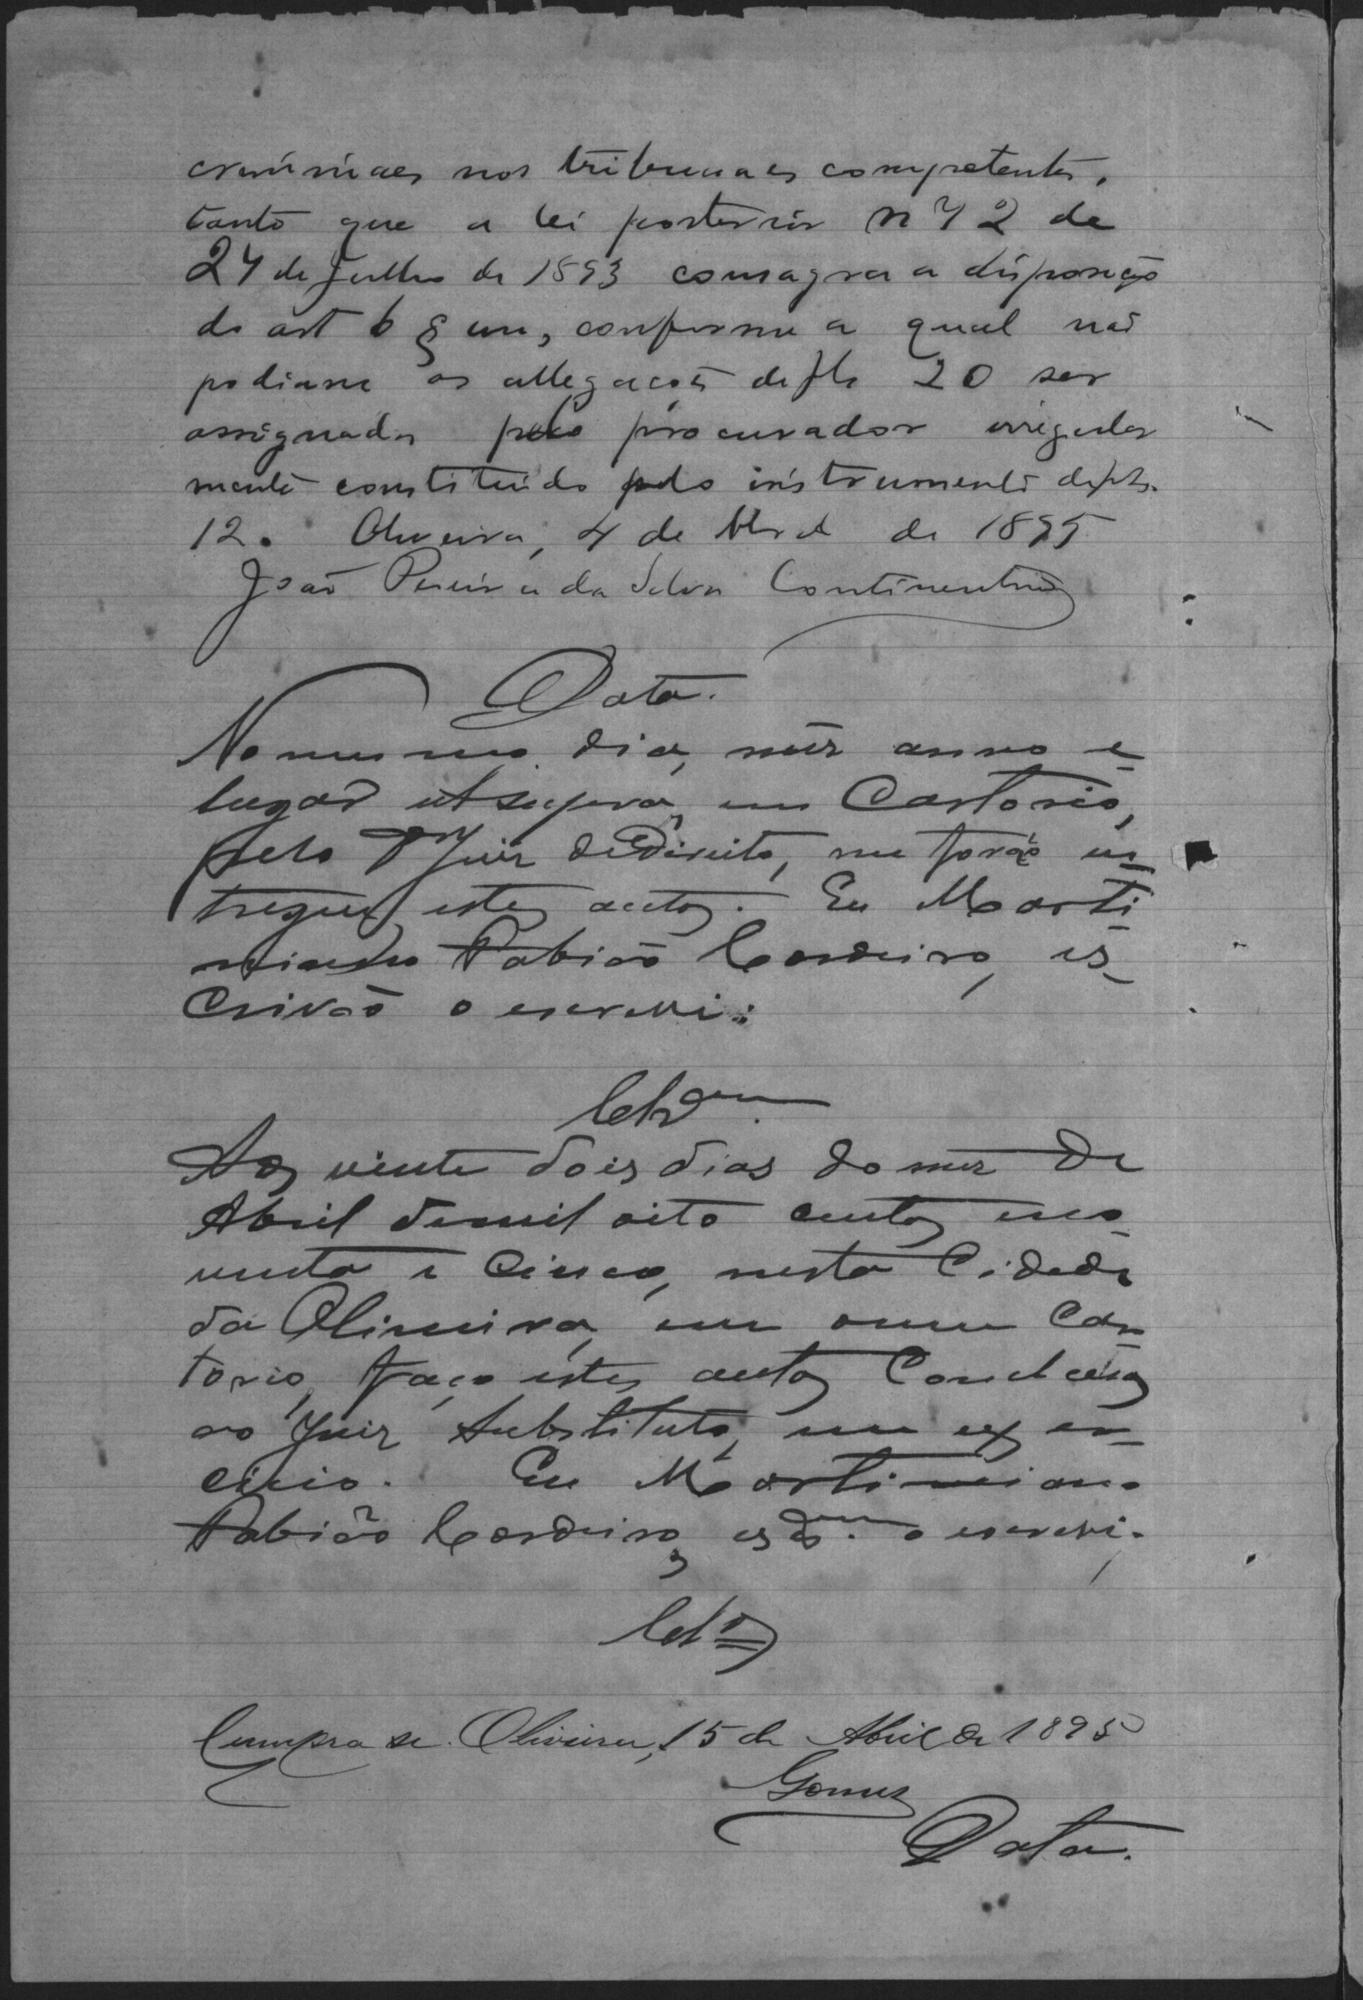 criminaes nos tribunaes competentes,
tanto que a lei posterior n 72 de
27 de Julho de 1893 consagra a disposição
do art 6 § un, conforme a qual não
podiam as allegações de fls 20 ser
assignadas pelo procurador irregular
mente constituido pelo instrumento de fls.
12. Oliveira, 4 de Abril de 1895
João Pereira da Silva Continentino
Data.
No mesmo dia, mez anno e
lugar ut supra, em Cartorio,
pelo Dr Juiz de Direito, me forão en
tregues estes autos. Eu Marti
niano Fabião Cordeiro, es
crivão o escrevi:
Clsam.
Aos vinte dois dias do mez de
Abril de mil oito centos no
venta e cinco, nesta Cidade
da Oliveira, em meu Car
torio, faço estes autos Conclusos
ao Juiz Substituto, em exer
cicio. Eu Martiniano
Fabião Cordeiro, esam. o escrevi.
Cls
Cumpra se. Oliveira, 15 de Abril de 1895
Gomes
Data.